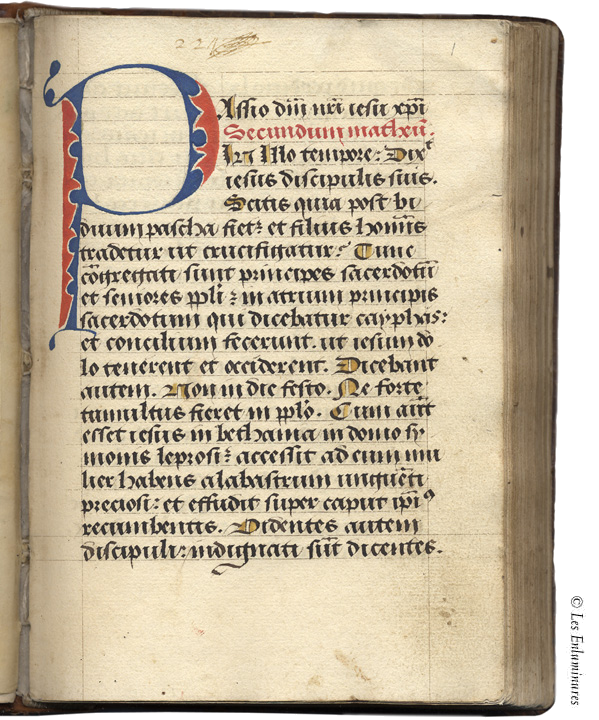 221
1
PAssio dn̄i nr̄i iesu xp̄i
Secundum matheū.
In Illo tempore: Dixᵗ
iesus discipulis suis.
Scitis quia post bi
duum pascha fiet: et filius homīs
tradetur ut crucifigatur: Tunc
cōgregati sunt principes sacerdotū
et seniores ppl̄i: in atrium principis
sacerdotum qui dicebatur cayphas:
et concilium fecerunt. ut iesum do
lo tenerent et occiderent. Dicebant
autem. Non in die festo. Ne forte
tumultus fieret in pplo. Cum aūt
esset iesus in bethania in domo sy
monis leprosi: accessit ad eum mu
lier habens alabastrum unguēti
preciosi: et effudit super caput ip̄iꝰ
recumbentis. Videntes autem
discipuli: indignati sūt dicentes.
© Les Enluminures